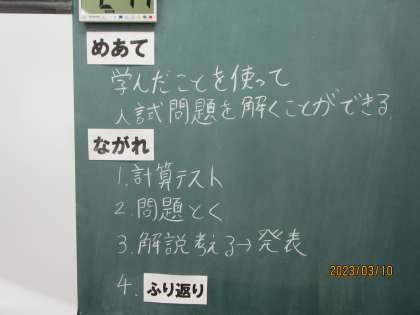 めあて
学んだことを使って
入試問題を解くことができる
ながれ
1.計算テスト
2.問題とく
3.解説考える→発表
4.ふり返り
2023/03/10